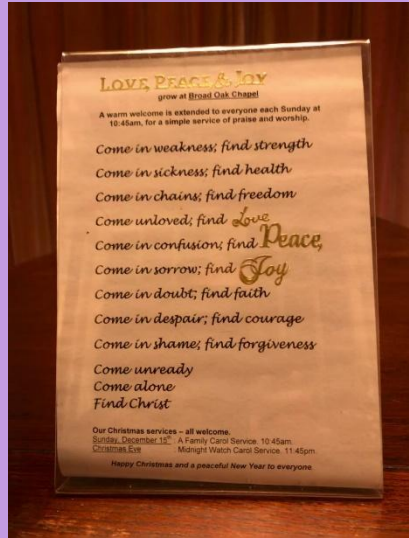 LOVE, PEACE & JOY
grow at Broad Oak Chapel
A warm welcome is extended to everyone each Sunday at
10:45am, for a simple service of praise and worship.
Come in weakness; find strength
Come in sickness; find health
Come in chains; find freedom
Come unloved; find Love
Come in confusion; find Peace,
Come in sorrow; find Joy
Come in doubt; find faith
Come in despair; find courage
Come in shame; find forgiveness
Come unready
Come alone
Find Christ
Our Christmas services – all welcome.
Sunday, December 15th : A Family Carol Service. 10:45am.
Christmas Eve : Midnight Watch Carol Service. 11:45pm.
Happy Christmas and a peaceful New Year to everyone